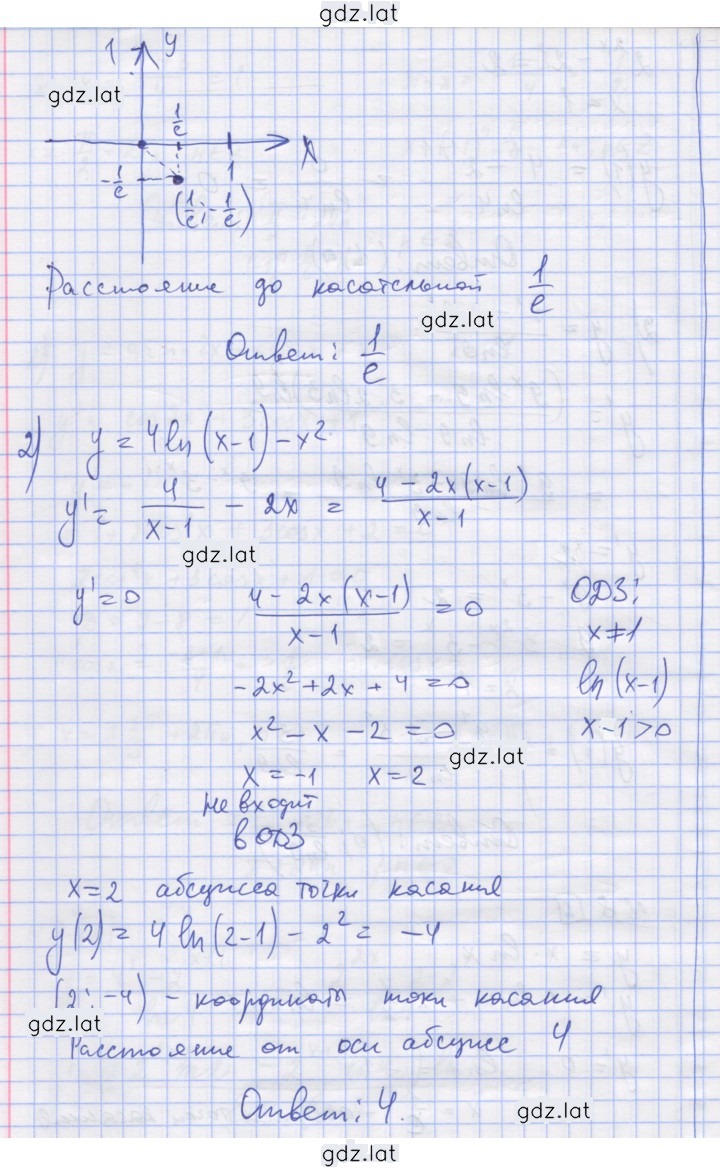 gdz.lat
1 y
gdz.lat
1/e
x
-1/e
1
(1/e; -1/e)
Расстояние до касательной 1/e
gdz.lat
Ответ: 1/e
2) y = 4ln(x-1) - x²
y' = 4/(x-1) - 2x = (4 - 2x(x-1))/(x-1)
gdz.lat
y' = 0 (4 - 2x(x-1))/(x-1) = 0 ОДЗ:
x≠1
-2x² + 2x + 4 = 0 ln(x-1)
x² - x - 2 = 0 x-1>0
gdz.lat
x = -1 x = 2
не входит
в ОДЗ
x=2 абсцисса точки касания
y(2) = 4ln(2-1) - 2² = -4
(2; -4) - координаты точки касания
gdz.lat
Расстояние от оси абсцисс 4
Ответ: 4.
gdz.lat
gdz.lat